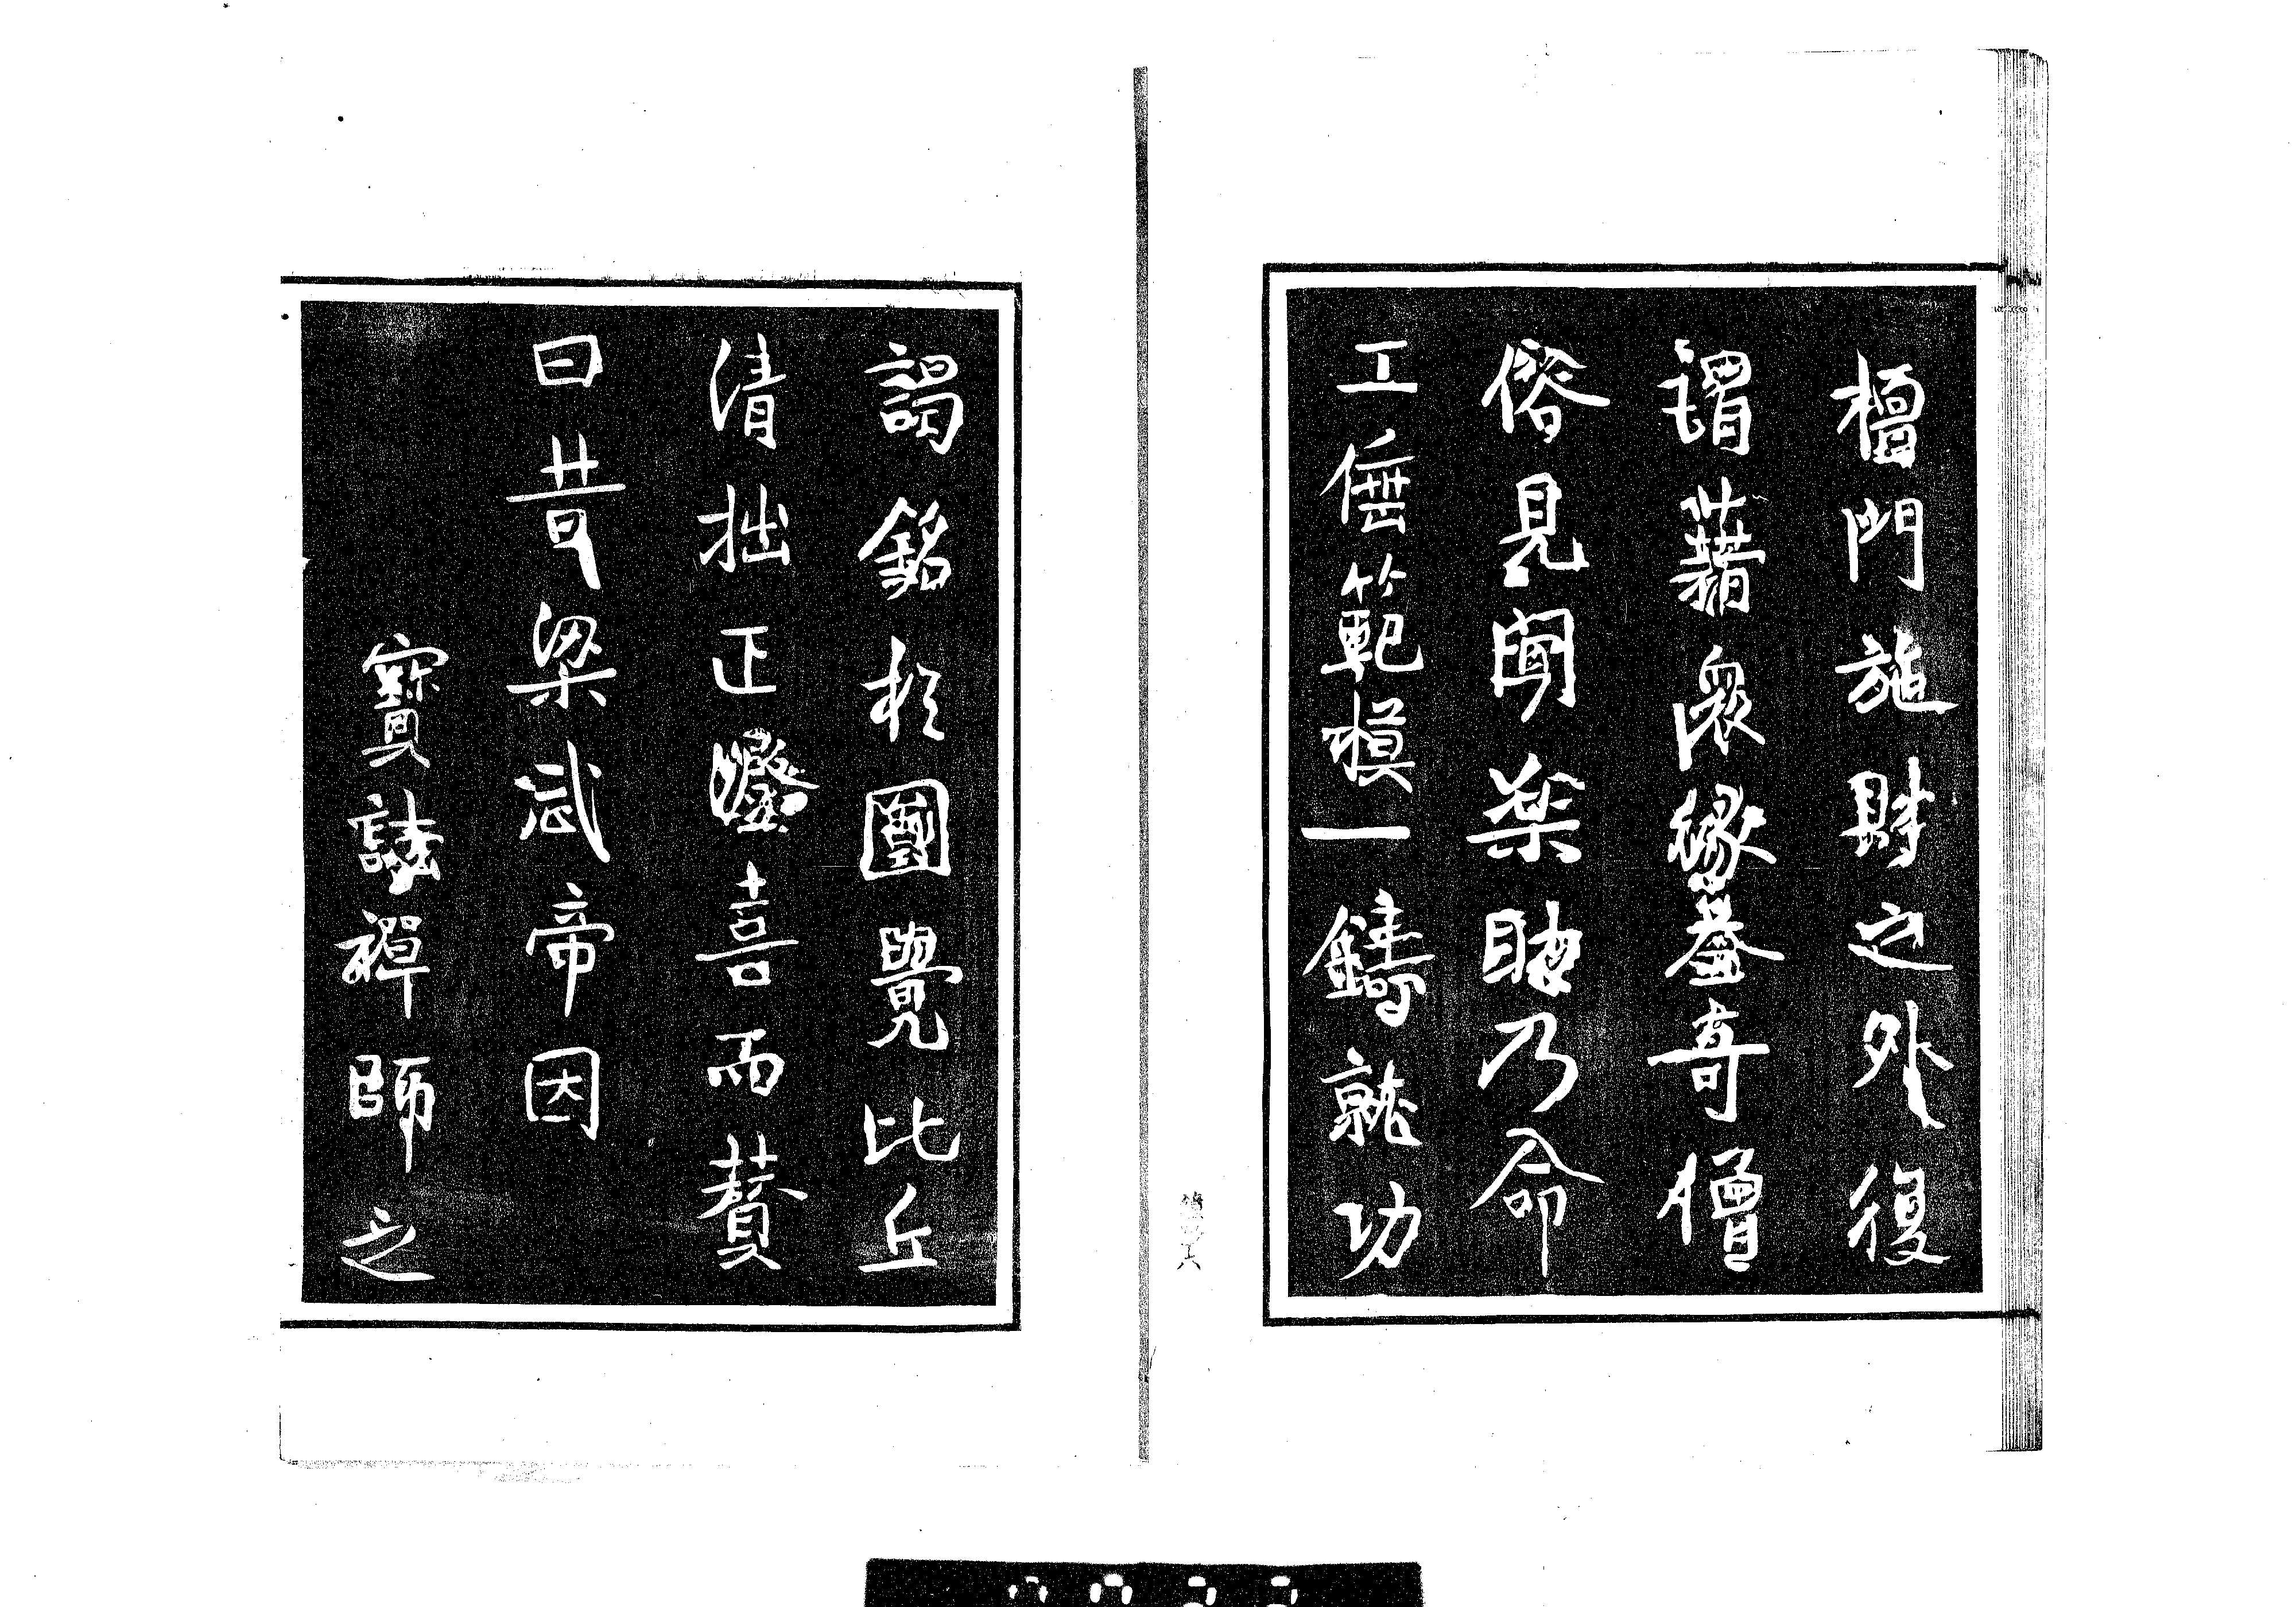 檀門施財之外復
謂藉衆緣蓋奇僧
俗見聞楽助乃命
工倕範模一鑄就功
謁銘於圓覺比丘
清拙正澄喜而賛
曰昔梁武帝因
寶誌禪師之